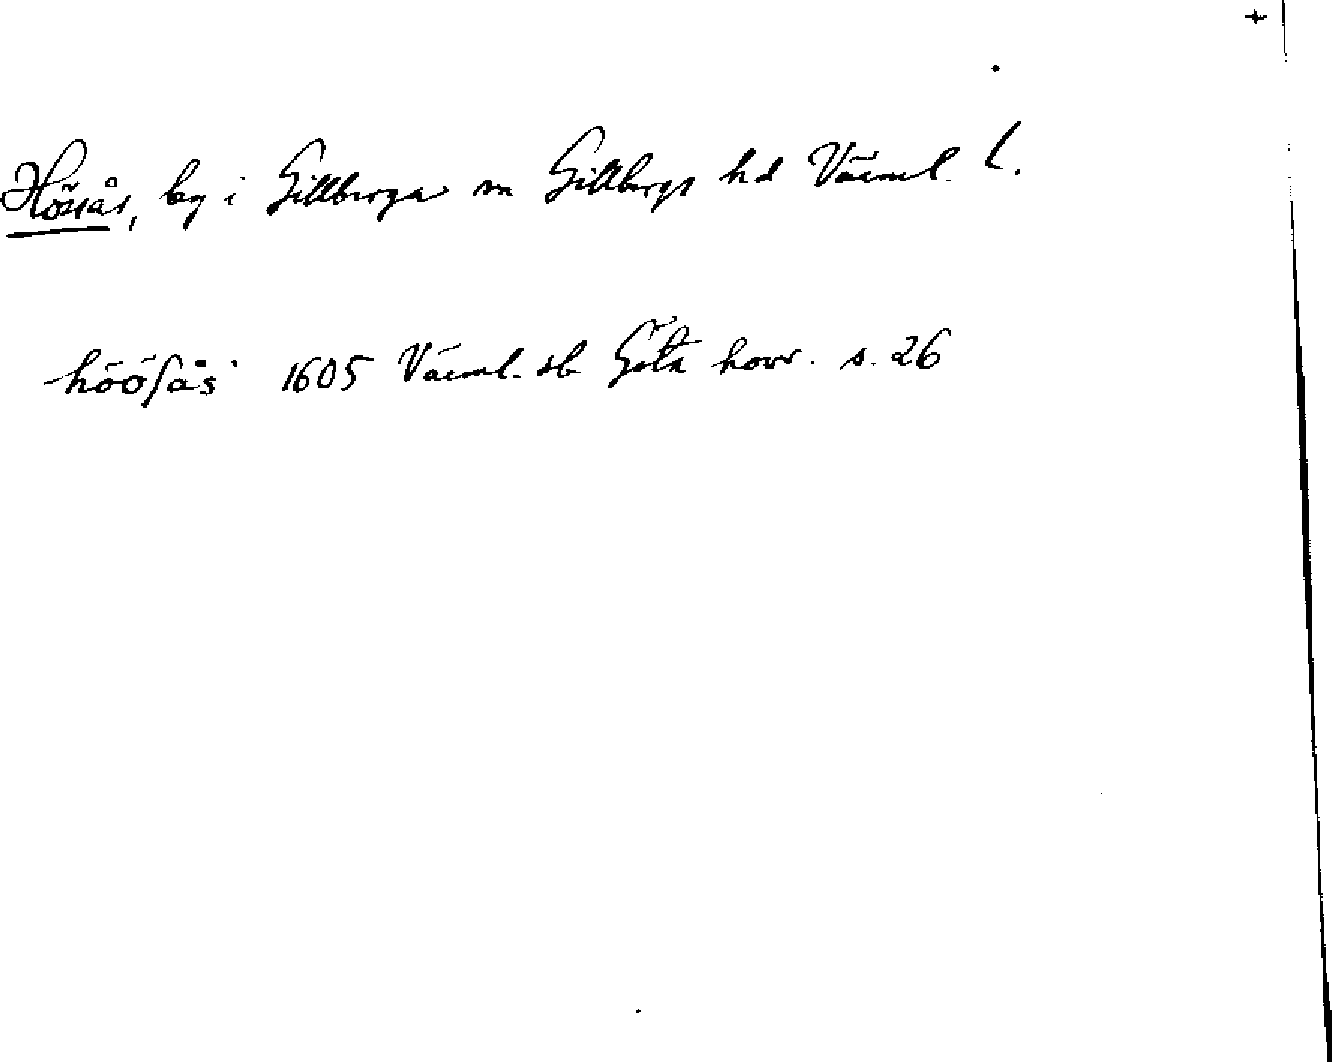 Hössås, by i Gillberga sn Gillbergs hd Värml. l.
höösås 1605 Värml. sb Göta hovr. s. 26